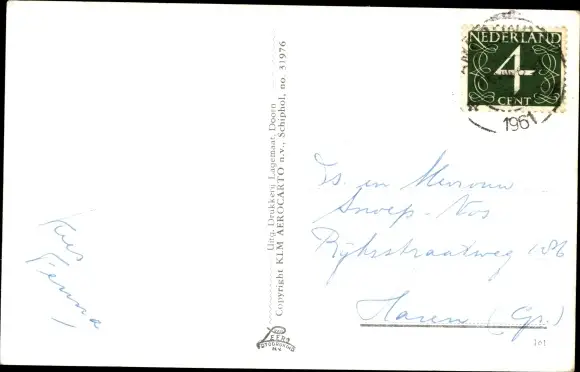 NEDERLAND
4
CENT
1961
Uitg. Drukkerij Lagemaat, Doorn
Copyright KLM AEROCARTO n.v., Schiphol, no. 31976
en Mevrouw
Snoep-Vos
Rijksstraatweg 186
Haren (Gr.)
Kus
Femma
101